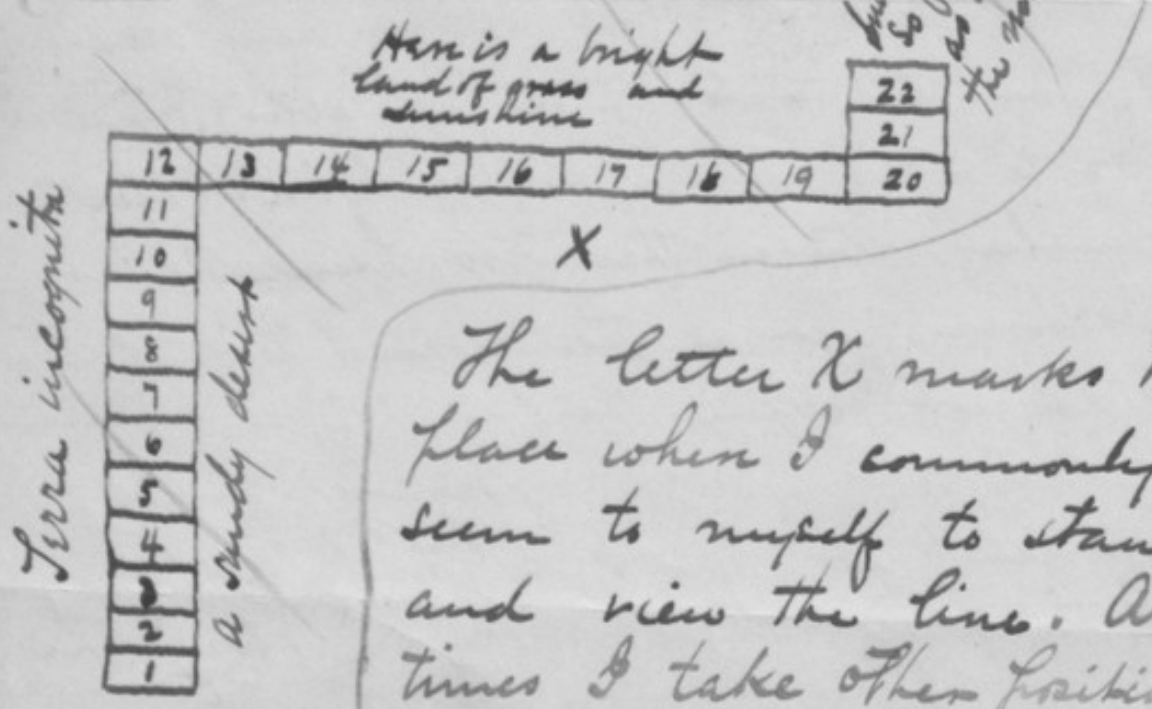 Here is a bright
land of grass and
sunshine
so
as
the
22
21
12 13 14 15 16 17 18 19 20
11
10
9
8
7
6
5
4
3
2
1
Terra incognita
a sandy desert
X
The letter X marks
place where I commonly
seem to myself to
and view the line.
times I take other